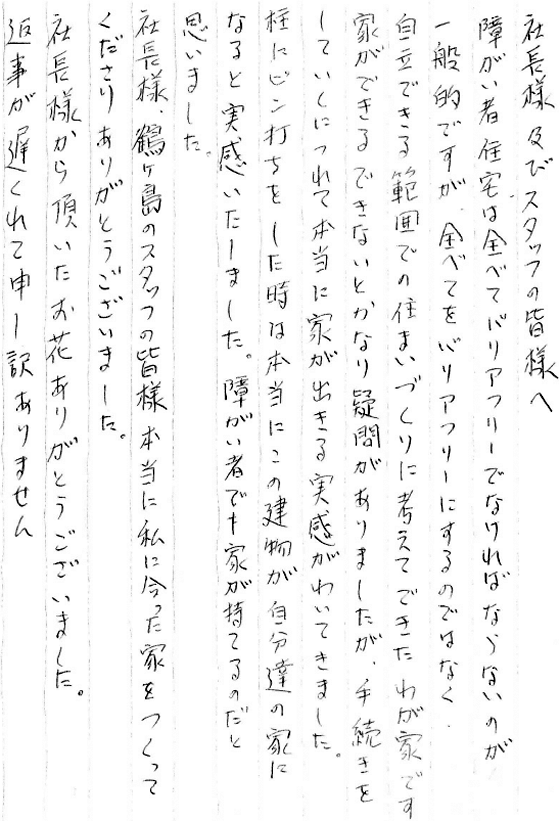 社長様及びスタッフの皆様へ
障がい者住宅は全べてバリアフリーでなければならないのが
一般的ですが、全べてをバリアフリーにするのではなく、
自立できる範囲での住まいづくりに考えてできたわが家です
家ができるできないとかなり疑問がありましたが、手続きを
していくにつれて本当に家が出きる実感がわいてきました。
柱にピン打ちをした時は本当にこの建物が自分達の家に
なると実感いたしました。障がい者でも家が持てるのだと
思いました。
社長様、鶴ヶ島のスタッフの皆様本当に私に合った家をつくって
くださりありがとうございました。
社長様から頂いたお花ありがとうございました。
返事が遅くれて申し訳ありません